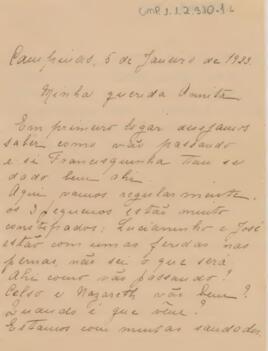 CMP.1.1.2.330.1.6
Campinas, 5 de Janeiro de 1923
Minha querida Annita
Em primeiro logar desejamos
saber como vão passando
e si Francisquinha tem se
dado bem ahi.
Aqui vamos regularmente,
os 3 pequenos estão muito
constipados; Lucianinho e José
estão com umas feridas nas
pernas, não sei o que será
Ahi como vão passando?
Celso e Nazareth vão bem?
Quando é que vem?
Estamos com muitas saudades